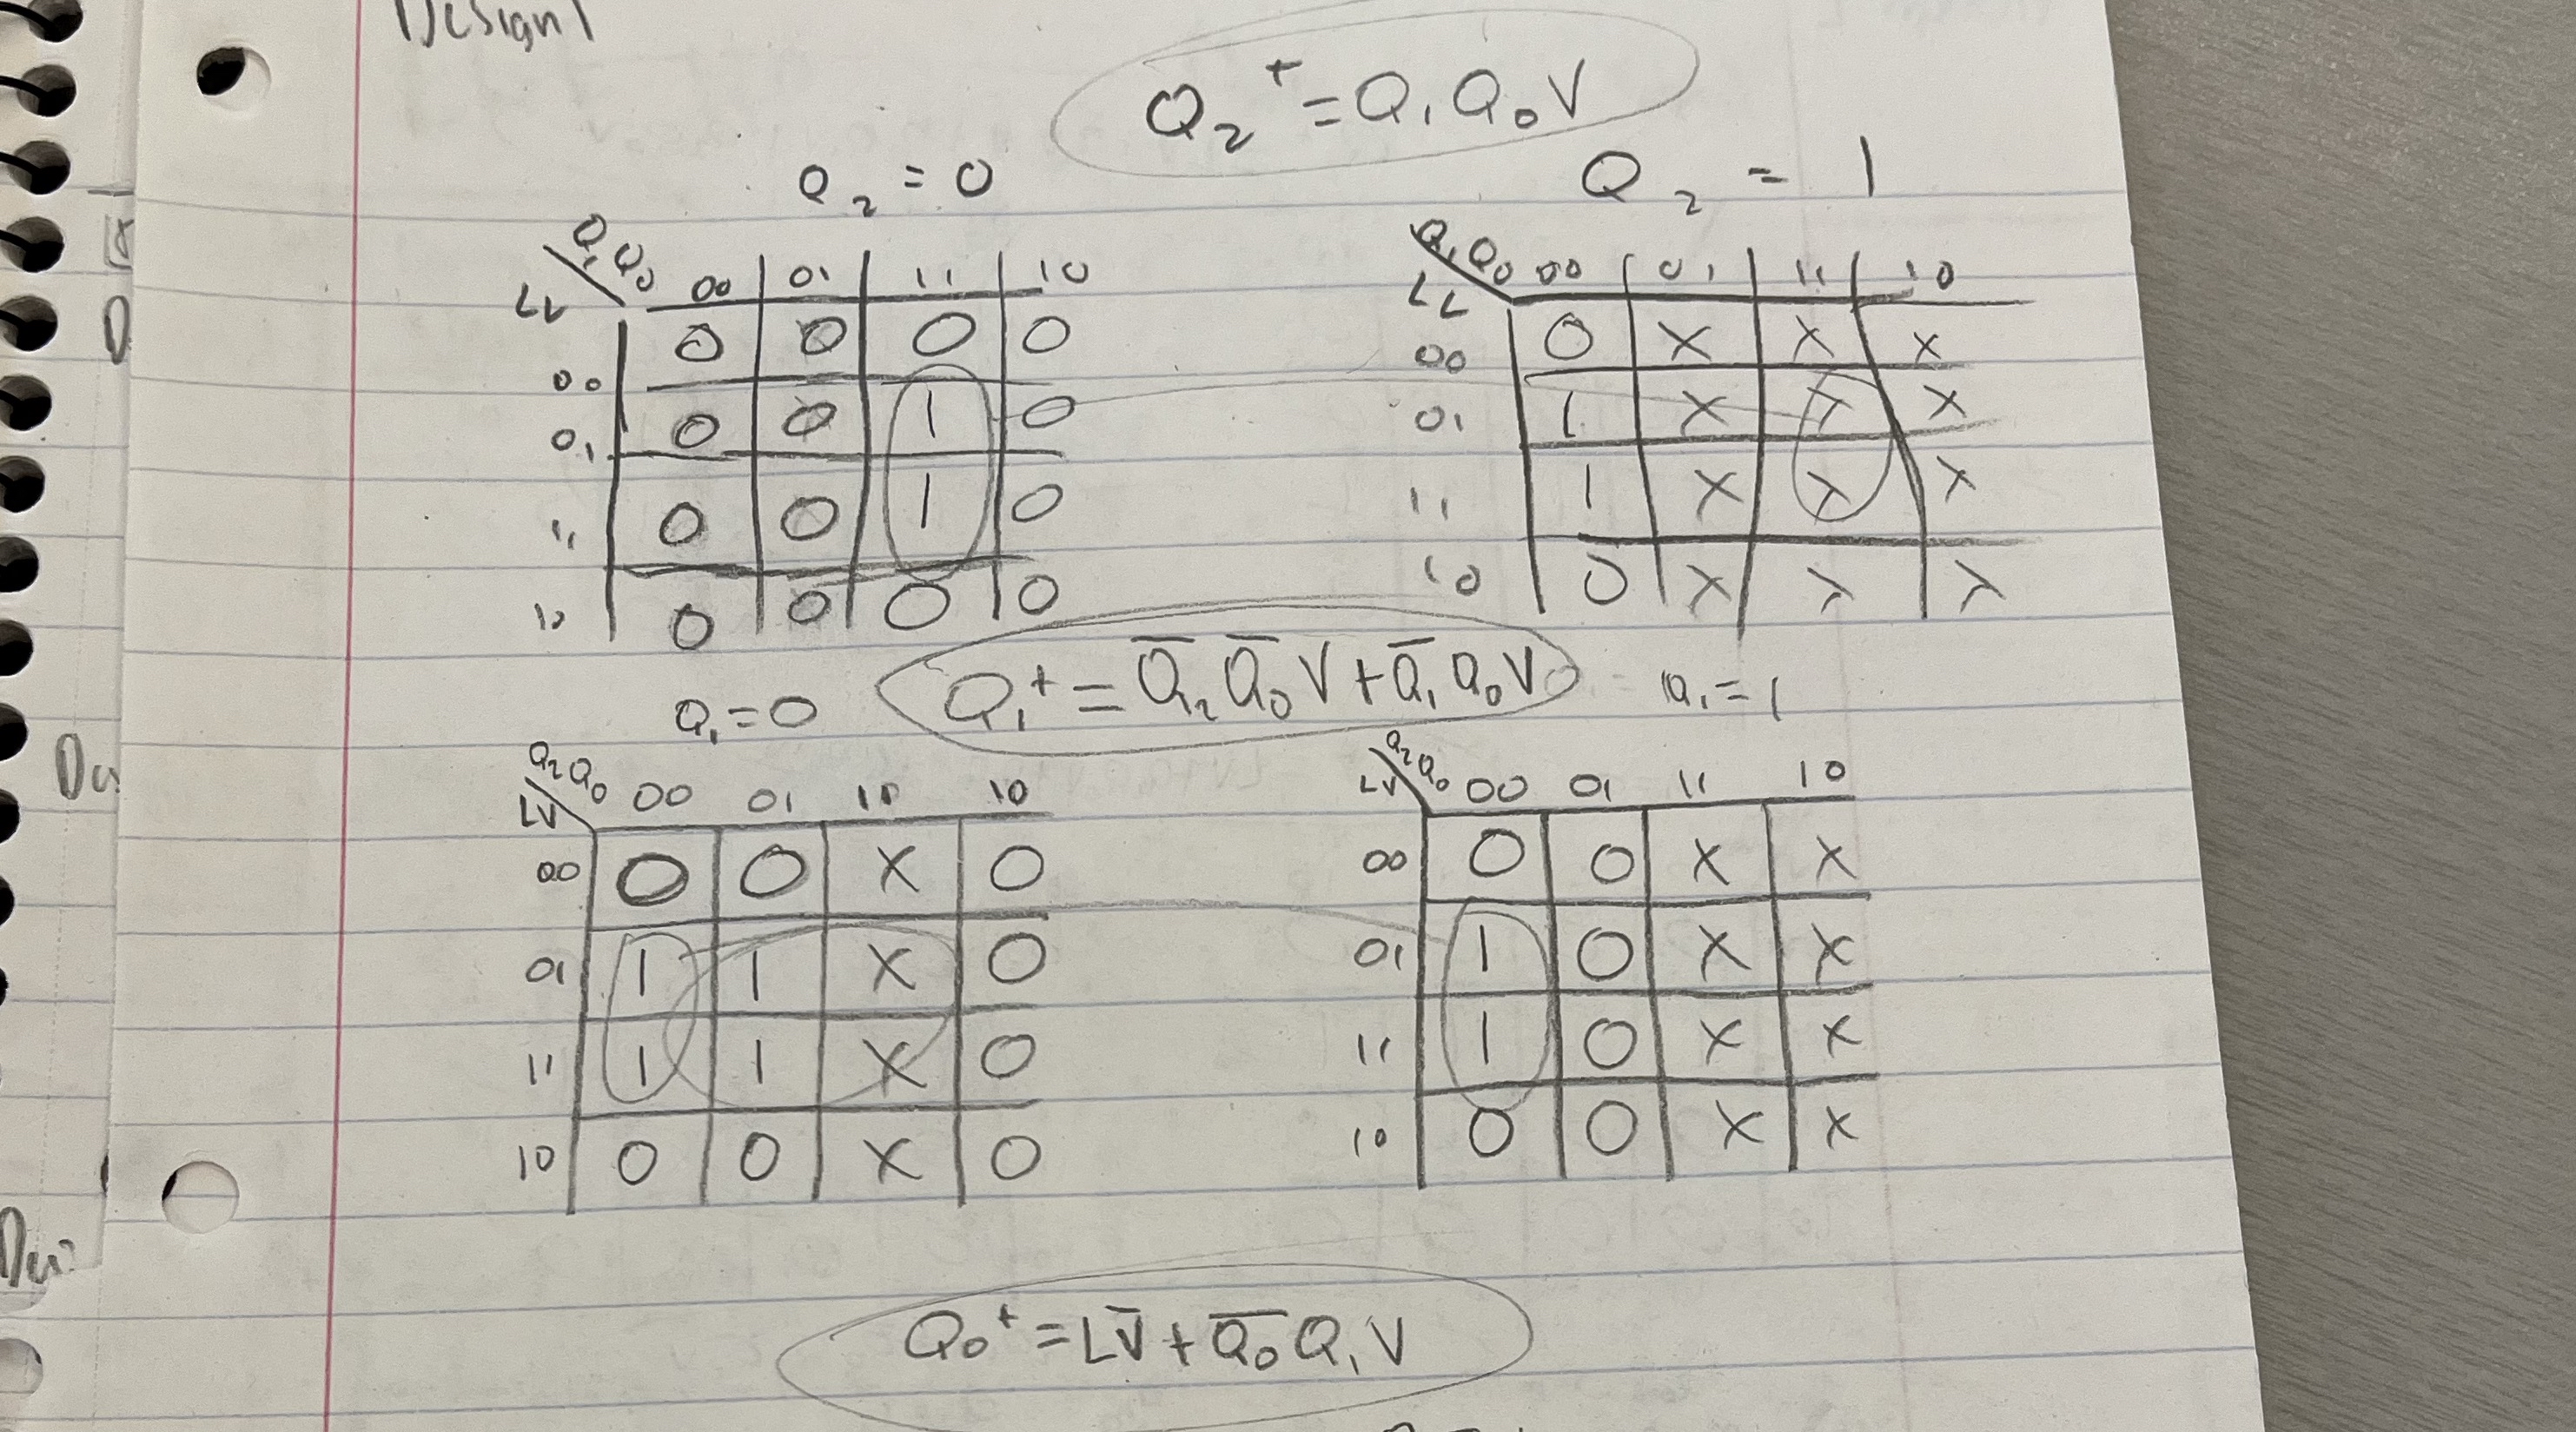 Design 1
Q₂⁺ = Q₁Q₀V
Q₂ = 0
Q₁Q₀ 00 01 11 10
LV
00 0 0 0 0
01 0 0 1 0
11 0 0 1 0
10 0 0 0 0
Q₂ = 1
Q₁Q₀ 00 01 11 10
LL
00 0 X X X
01 1 X X X
11 1 X X X
10 0 X X X
Q₁⁺ = Q̅₂Q̅₀V + Q̅₁Q₀V
Q₁ = 0
Q₂Q₀ 00 01 11 10
LV
00 0 0 X 0
01 1 1 X 0
11 1 1 X 0
10 0 0 X 0
Q₁ = 1
Q₂Q₀ 00 01 11 10
LV
00 0 0 X X
01 1 0 X X
11 1 0 X X
10 0 0 X X
Q₀⁺ = LV̅ + Q̅₀Q₁V